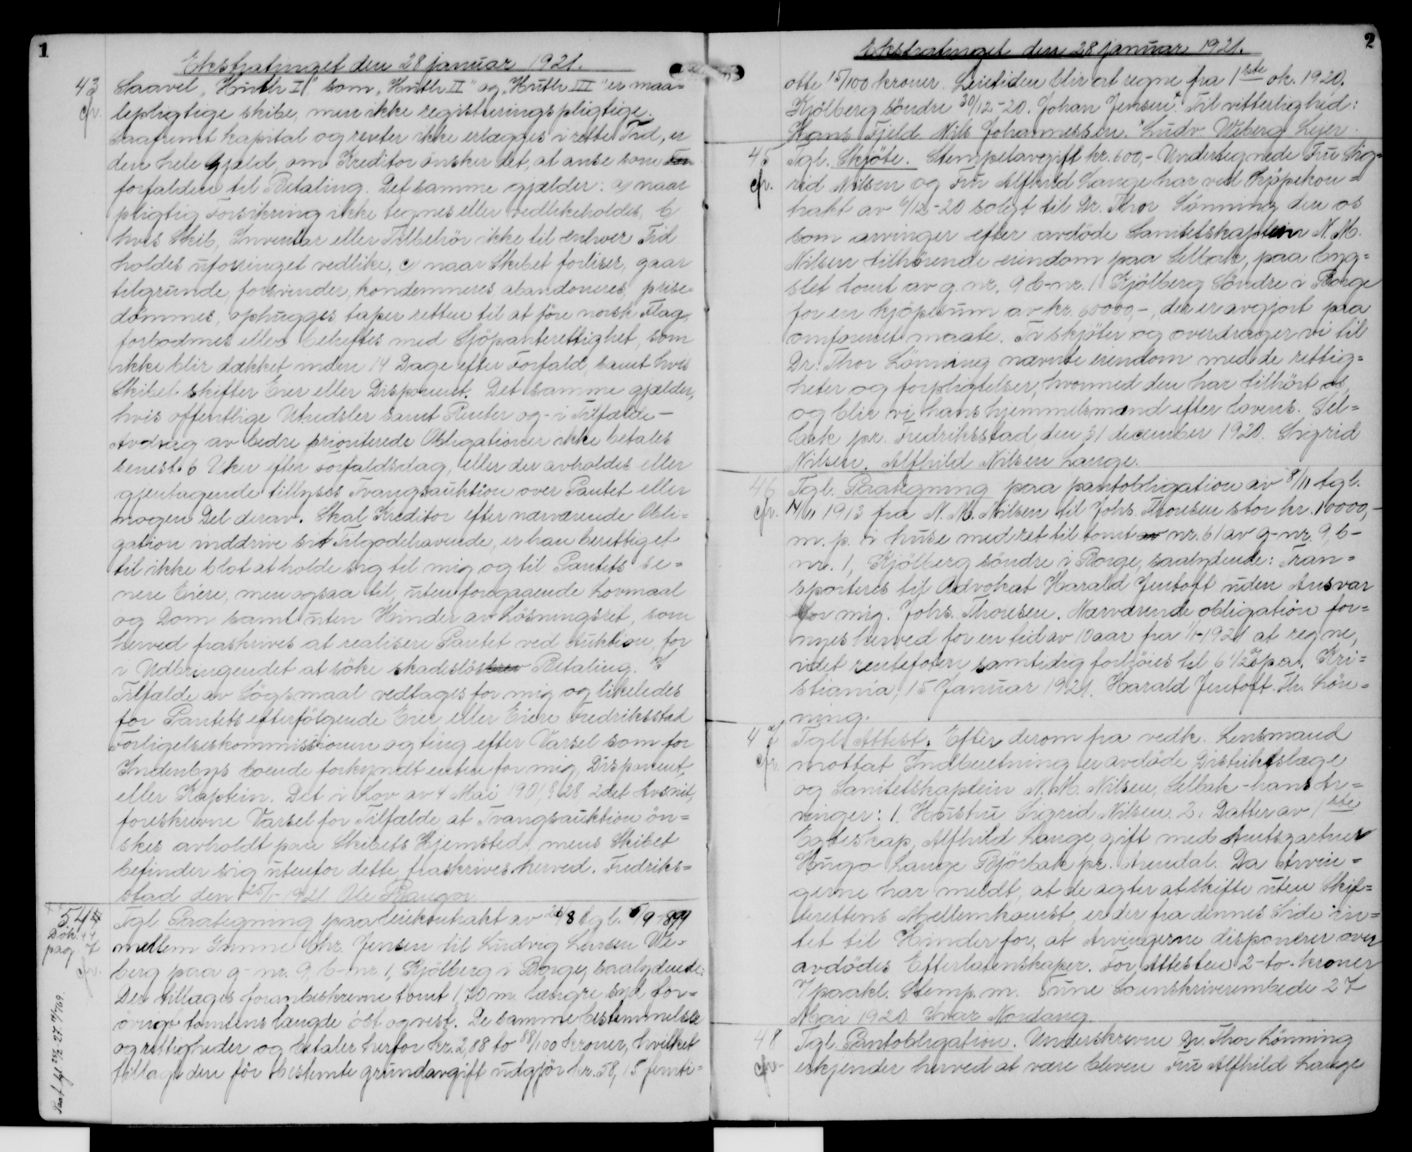 1
Ekstratinget den 28 januar 1921.
43 Saavel "Huth I" som "Huth II" og "Huth III" er maa-
cfr. lepligtige skibe, men ikke registreringspligtige.
Saafremt kapital og renter ikke erlægges i rette Tid, er
den hele Gjæld, om Kreditor ønsker det, at anse som
forfalden til Betaling. Det samme gjælder: a) naar
pligtig Forsikring ikke tegnes eller vedlikeholdes, b)
hvis Skib, Inventar eller Tilbehör ikke til enhver Tid
holdes uforringet vedlike, c) naar Skibet forliser, gaar
tilgrunde, forsvinder, kondemneres, abandoneres, prise-
dømmes, ophugges, taper retten til at føre norsk Flag,
forbodmes eller beheftes med Sjöpanterettighet, som
ikke blir dækket inden 14 Dage efter Forfald, samt hvis
Skibet skifter Eier eller Disponent. Det samme gjælder,
hvis offentlige Utredsler samt Renter og - i Tilfælde -
Avdrag av bedre prioriterede Obligationer ikke betales
senest 6 Uker efter Forfaldsdag, eller der avholdes eller
gjentagende tillyses Tvangsauktion over Pantet eller
nogen Del derav. Skal Kreditor efter nærværende Obli-
gation inddrive sit Tilgodehavende, er han berettiget
til ikke blot at holde sig til mig og til Pantets se-
nere Eiere, men ogsaa til, uten foregaaende Lovmaal
og Dom samt uten Hinder av Løsningsret, som
herved fraskrives at realisere Pantet ved Auktion, for
i Udbringendet at søke skadesløs Betaling. I
Tilfælde av Søgsmaal vedtages for mig og likeledes
for Pantets efterfölgende Eier eller Eiere Fredriksstad
Forligelseskommissionen og ting efter Varsel som for
Indenbys boende forkyndt enten for mig, Disponent,
eller Kaptein. Det i Lov av 4 Mai 1901, § 28 2det Avsnit,
foreskrevne Varsel for Tilfælde at Tvangsauktion øn-
skes avholdt paa Skibets Hjemsted, mens Skibet
befinder sig utenfor dette, fraskrives herved. Fredriks-
stad den 25/1-1921 Ole Haugen.
544 Tgl. Paategning paa leiekontrakt av 26/8 tgl. 5/9-89
mellem Gunne Chr. Jensen til Ludvig Larsen We-
berg paa g-nr. 9, b-nr 1, Kjölberg i Borge, saalydende:
Der tillægges foranbeskrevne tomt 1,70 m. længre syd for-
övrigt tomtens længde öst og vest. De samme bestemmelser
og rettigheder og betaler herfor kr. 2,08 to 08/100 kroner, hvilket
tillagt den för bestemte grundavgift utgjör kr. 58,15 femti-
2
Ekstratinget den 28 januar 1921.
otte 15/100 kroner. Leietiden blir at regne fra 1ste ok. 1920.
Kjölberg søndre 30/12-20. Johan Jensen. Til vitterlighed:
Hans Fjeld Nils Johannessen. Ludv. Weberg Leier.
45 Tgl. Skjöte. Stempelavgift kr. 600,- Undertegnede Fru Sig-
cfr. rid Nilsen og Fru Alfhild Lange har ved Kjøpekon-
trakt av 6/12-20 solgt til Dr. Thor Lönning den os
som arvinger efter avdøde Sanitetskaptein N. M.
Nilsen tilhørende eiendom paa Selbak, paa byg-
slet tomt av g. nr. 9 b-nr. 1 Kjölberg Söndre i Borge
for en kjøpesum av kr. 60000,-, der er avgjort paa
omforenet maate. Ti skjöter og overdrager vi til
Dr. Thor Lönning nævnte eiendom med de rettig-
heter og forpligtelser, hvormed den har tilhört os,
og blir vi hans hjemmelsmænd efter lovens. Sel-
bak pr. Fredriksstad den 31 december 1920. Sigrid
Nilsen. Alfhild Nilsen Lange.
46 Tgl. Paategning paa pantobligation av 8/11 tgl.
cfr. 14/11 1913 fra N. M. Nilsen til Johs. Thoresen stor kr. 10000,-
m. p. i huse med ret til tomt nr. 61 av g-nr. 9 b-
nr. 1, Kjölberg söndre i Borge, saalydende: Tran-
sporteres til Advokat Harald Jentoft uden Ansvar
for mig. Johs. Thoresen. Nærværende obligation for-
nyes herved for en tid av 10 aar fra 1/1-1921 at regne,
idet rentefoten samtidig forhøies til 6 1/2 % pa. Kri-
stiania, 15 Januar 1921. Harald Jentoft. Th. Lön-
ning.
47 Tgl. Attest. Efter derom fra vedk. Lensmand
cfr. mottat Indberetning er avdöde Distriktslæge
og Sanitetskaptein N. M. Nilsen, Selbak - hans Ar-
vinger: 1. Hustru Sigrid Nilsen. 2. Datter av 1ste
Egteskap, Alfhild Lange, gift med Amtsgartner
Hugo Lange Bjorbak pr. Arendal. Da Arvin-
gerne har meldt, at de agter at skifte uten Skif-
terettens Mellemkomst, er der fra dennes Side in-
tet til Hinder for, at Arvingerne disponerer over
avdødes Efterladenskaper. For Attesten 2 - to - kroner
i paakl. Stemp. m. Tune Sorenskriverembede 27
Mai 1920 Ivar Nordang.
48 Tgl. Pantobligation. Underskrevne Dr. Thor Lönning
cfr. erkjender herved at være bleven Fru Alfhild Lange